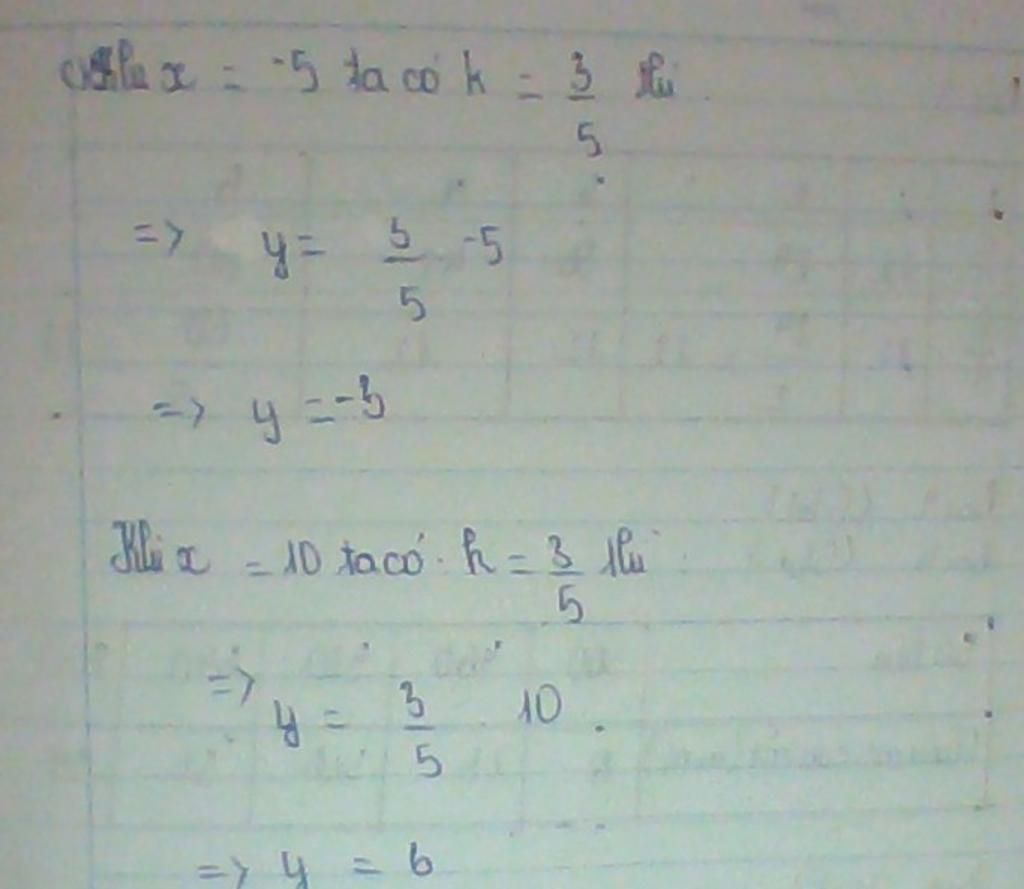 x = -5 ta có k = 3/5 thì
=> y = 3/5 -5
=> y = -3
Khi x = 10 ta có k = 3/5 thì
=> y = 3/5 . 10
=> y = 6